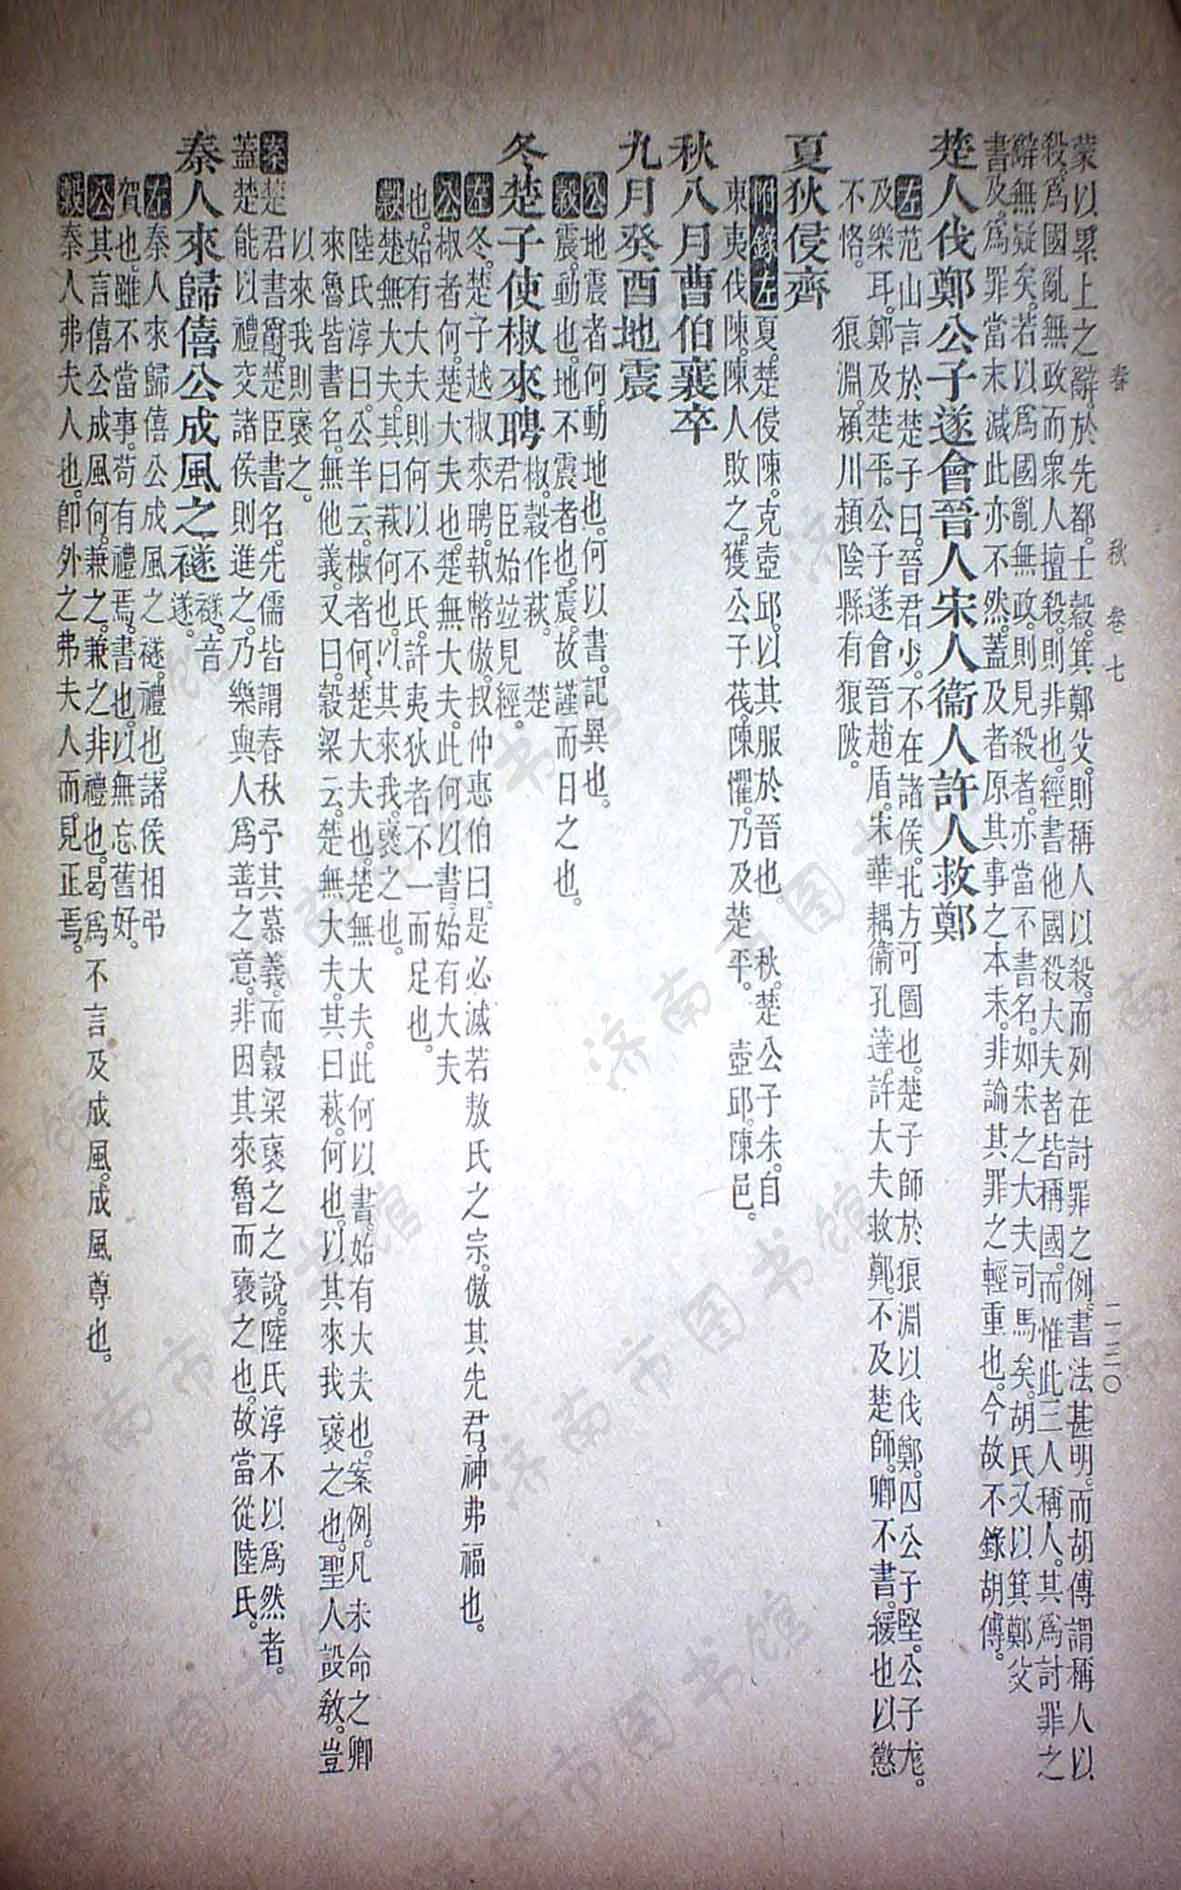 春　秋　卷七　二三〇
蒙以累上之辭於先都士縠箕鄭父則稱人以殺而列在討罪之例書法甚明而胡傳謂稱人以
殺爲國亂無政而衆人擅殺則非也經書他國殺大夫者皆稱國而惟此三人稱人其爲討罪之
辭無疑矣若以爲國亂無政則見殺者亦當不書名如宋之大夫司馬矣胡氏又以箕鄭父
書及爲罪當末減此亦不然蓋及者原其事之本末非論其罪之輕重也今故不錄胡傳
楚人伐鄭公子遂會晉人宋人衞人許人救鄭
左范山言於楚子曰晉君少不在諸侯北方可圖也楚子師於狼淵以伐鄭囚公子堅公子尨
及樂耳鄭及楚平公子遂會晉趙盾宋華耦衞孔達許大夫救鄭不及楚師卿不書緩也以懲
不恪　狼淵潁川潁陰縣有狼陂
夏狄侵齊
附錄左夏楚侵陳克壺邱以其服於晉也　秋楚公子朱自
東夷伐陳陳人敗之獲公子茷陳懼乃及楚平　壺邱陳邑
秋八月曹伯襄卒
九月癸酉地震
公地震者何動地也何以書記異也
穀震動也地不震者也震故謹而日之也
冬楚子使椒來聘椒穀作萩　楚
君臣始竝見經
左冬楚子越椒來聘執幣傲叔仲惠伯曰是必滅若敖氏之宗傲其先君神弗福也
公椒者何楚大夫也楚無大夫此何以書始有大夫
也始有大夫則何以不氏許夷狄者不一而足也
穀楚無大夫其曰萩何也以其來我襃之也
陸氏淳曰公羊云椒者何楚大夫也楚無大夫此何以書始有大夫也案例凡未命之卿
來魯皆書名無他義又曰穀梁云楚無大夫其曰萩何也以其來我襃之也聖人設敎豈
以來我則襃之
案楚君書爵楚臣書名先儒皆謂春秋予其慕義而穀梁襃之之說陸氏淳不以爲然者
蓋楚能以禮交諸侯則進之乃樂與人爲善之意非因其來魯而襃之也故當從陸氏
秦人來歸僖公成風之襚襚音
遂
左秦人來歸僖公成風之襚禮也諸侯相弔
賀也雖不當事苟有禮焉書也以無忘舊好
公其言僖公成風何兼之兼之非禮也曷爲不言及成風成風尊也
穀秦人弗夫人也卽外之弗夫人而見正焉